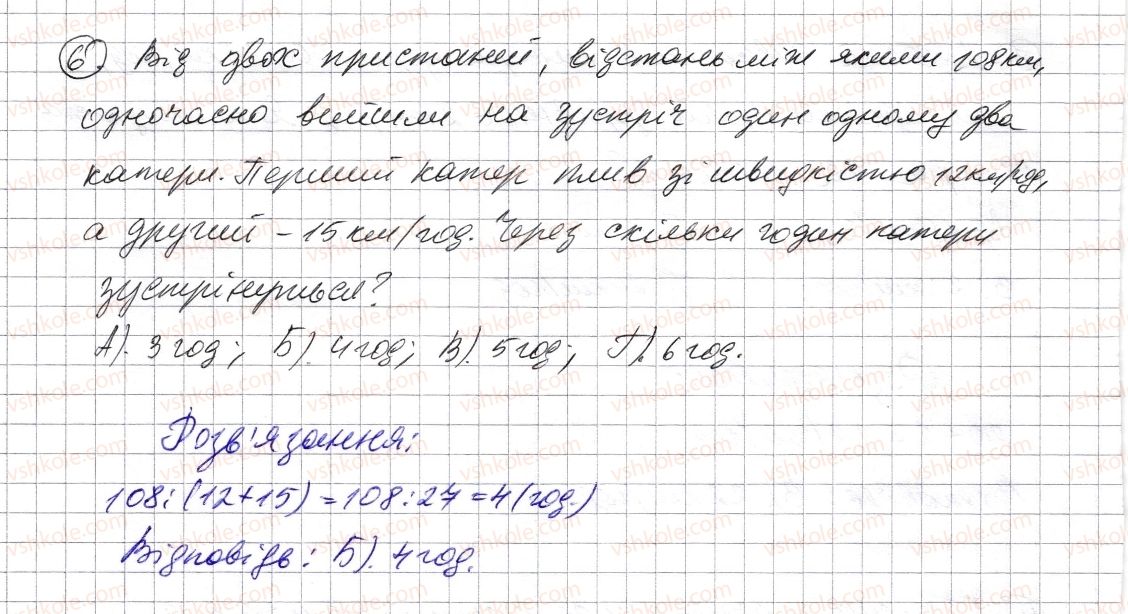 6. Від двох пристаней, відстань між якими 108 км,
одночасно вийшли на зустріч один одному два
катери. Перший катер плив зі швидкістю 12 км/год,
а другий – 15 км/год. Через скільки годин катери
зустрінуться?
А). 3 год; Б). 4 год; В). 5 год; Г). 6 год.
Розв'язання:
108:(12+15)=108:27=4(год.)
Відповідь: Б). 4 год.